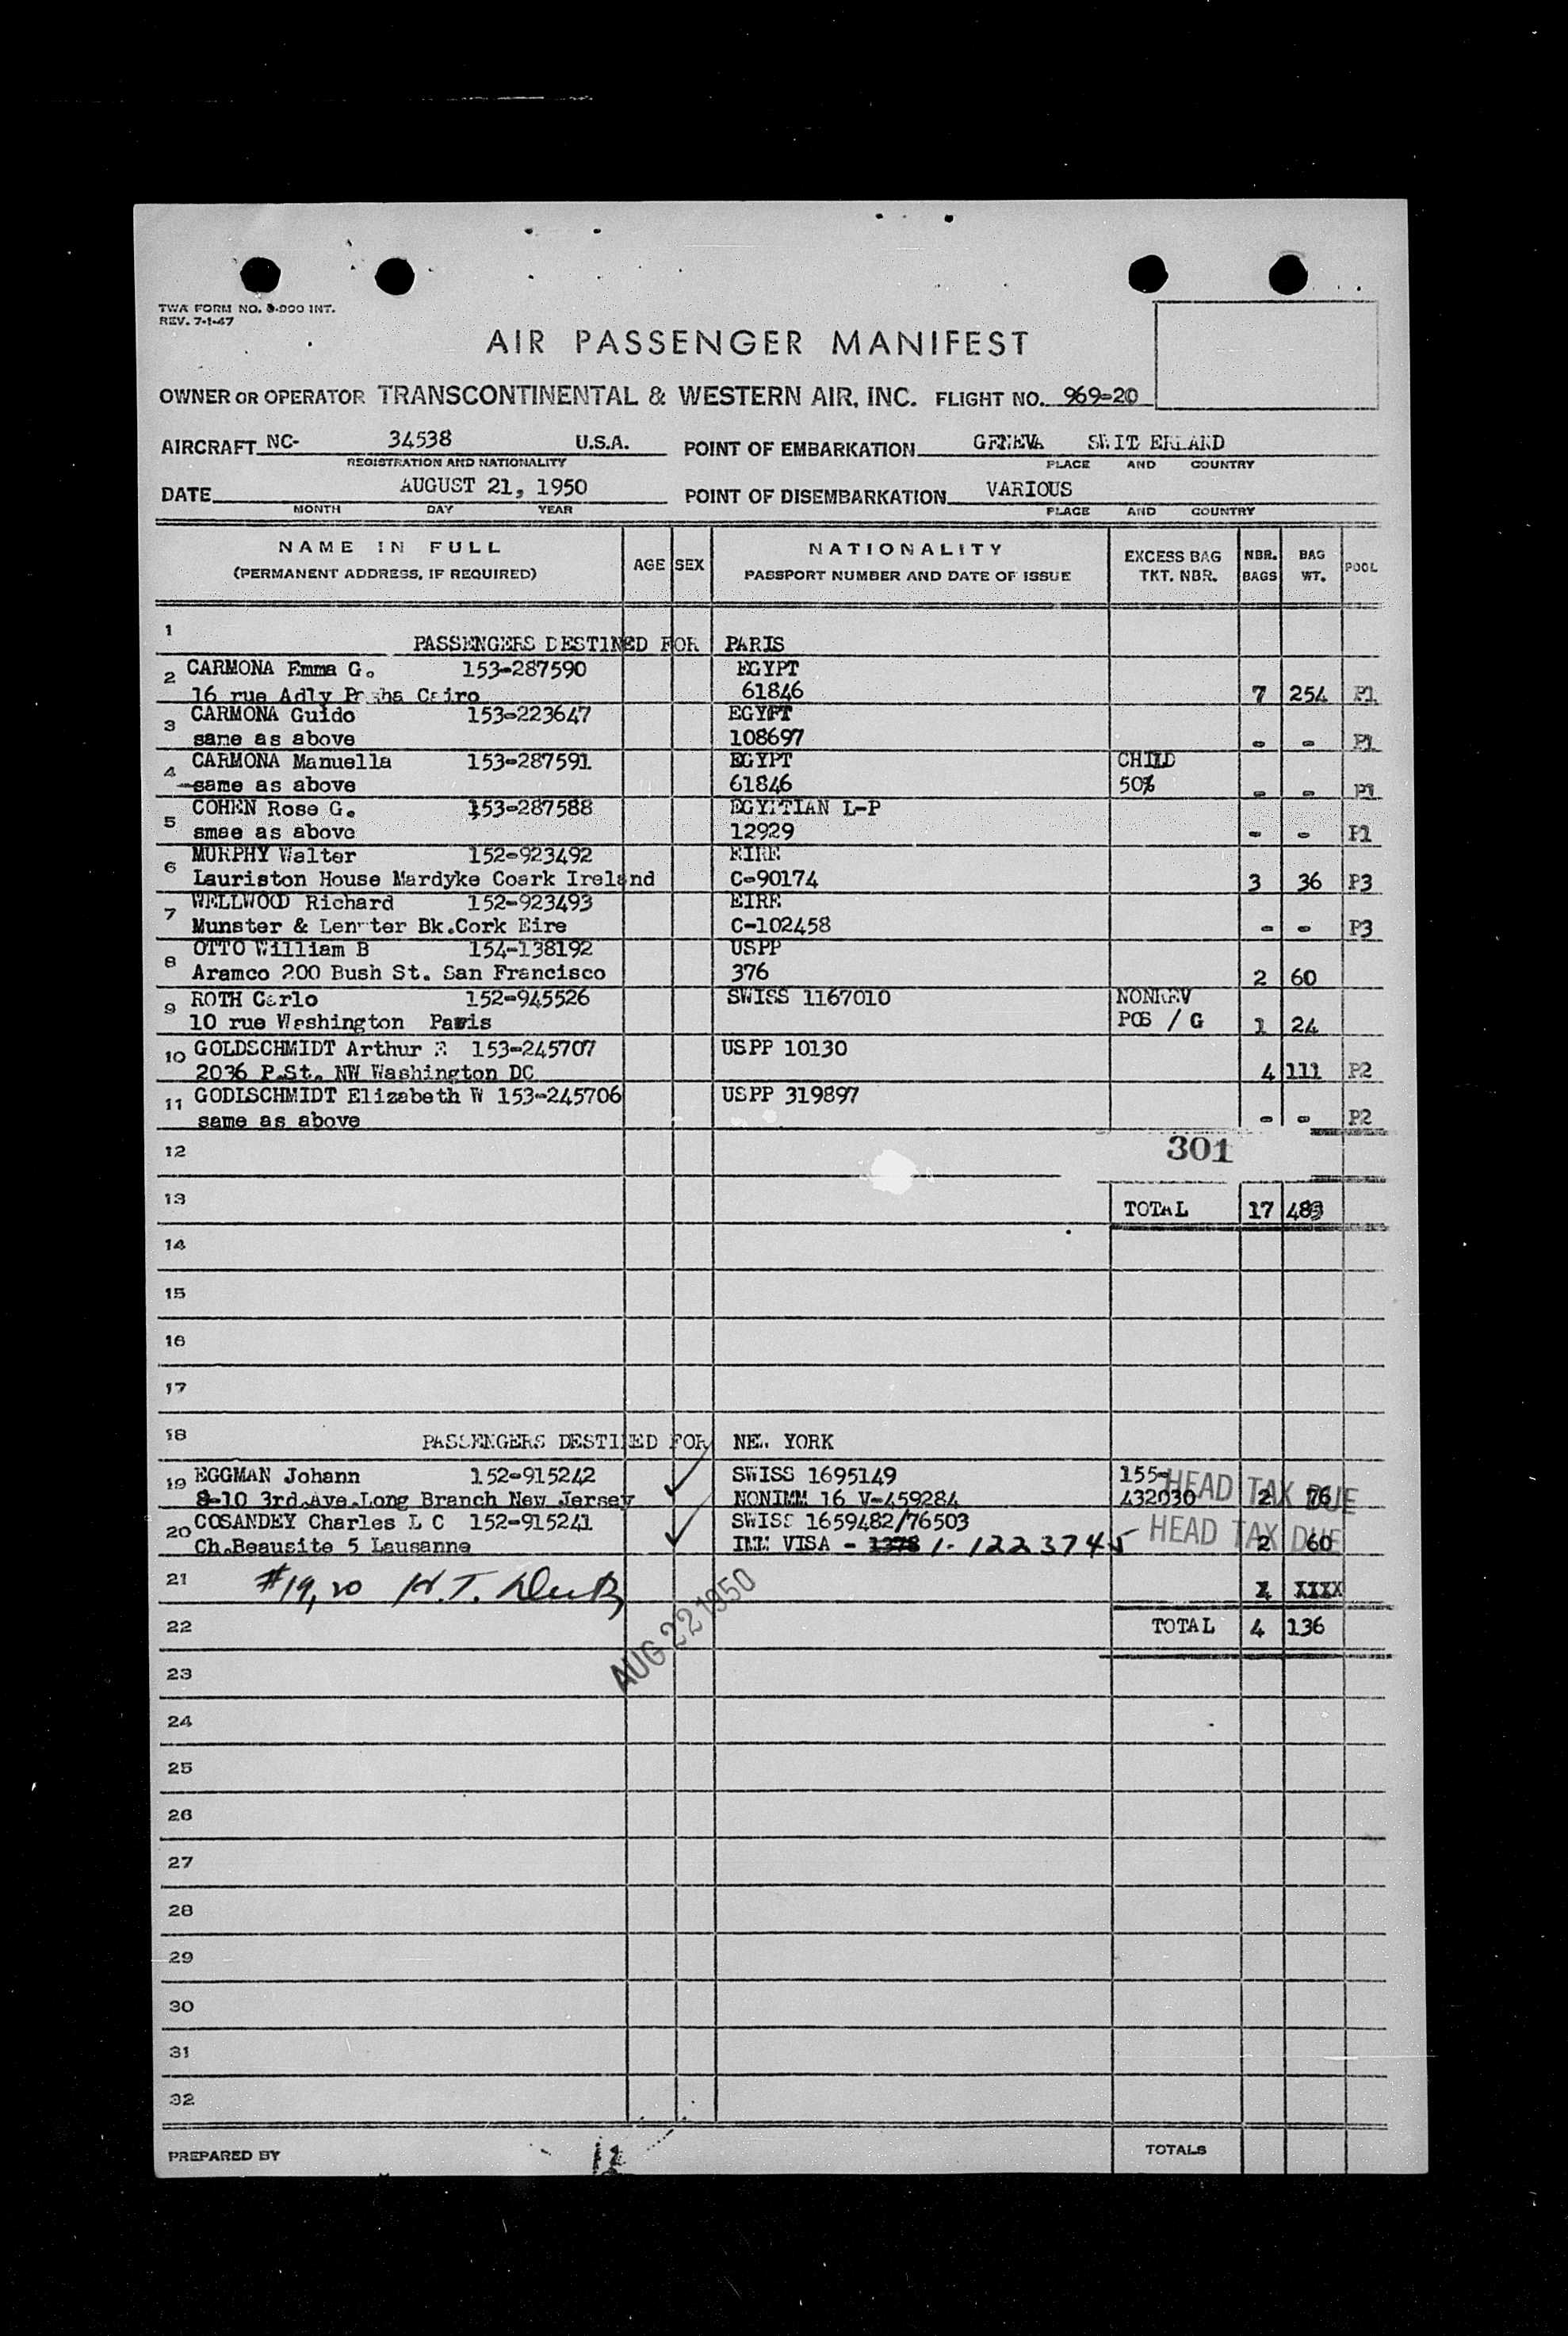 TWA FORM NO. INT.
REV. 7-1-47
AIR PASSENGER MANIFEST
OWNER OR OPERATOR TRANSCONTINENTAL & WESTERN AIR, INC. FLIGHT NO. 969-20
AIRCRAFT NC- 34538 U.S.A. POINT OF EMBARKATION GENEVA SWIT ERLAND
REGISTRATION AND NATIONALITY PLACE AND COUNTRY
DATE AUGUST 21, 1950 POINT OF DISEMBARKATION VARIOUS
MONTH DAY YEAR PLACE AND COUNTRY
NAME IN FULL AGE SEX NATIONALITY EXCESS BAG NBR. BAG POOL
(PERMANENT ADDRESS, IF REQUIRED) PASSPORT NUMBER AND DATE OF ISSUE TKT. NBR. BAGS WT.
1 PASSENGERS DESTINED FOR PARIS
2 CARMONA Emma G. 153-287590 EGYPT
16 rue Adly Cairo 61846 7 254 P1
3 CARMONA Guido 153-223647 EGYPT
sane as above 108697 - - P1
4 CARMONA Manuella 153-287591 EGYPT CHILD
same as above 61846 50% - - P1
5 COHEN Rose G. 153-287588 EGYPTIAN L-P
smae as above 12929 - - P1
6 MURPHY Walter 152-923492 EIRE
Lauriston House Mardyke Coark Ireland C-90174 3 36 P3
7 WELLWOOD Richard 152-923493 EIRE
Munster & Bk.Cork Eire C-102458 - - P3
8 OTTO William B 154-138192 USPP
Aramco 200 Bush St. San Francisco 376 2 60
9 ROTH Carlo 152-945526 SWISS 1167010 NONREV
10 rue Washington Paris POS / G 1 24
10 GOLDSCHMIDT Arthur E 153-245707 USPP 10130
2036 P.St. NW Washington DC 4 111 P2
11 GODLSCHMIDT Elizabeth W 153-245706 USPP 319897
same as above - - P2
12 301
13 TOTAL 17
14
15
16
17
18 PASSENGERS DESTINED FOR NEW YORK
19 EGGMAN Johann 152-915242 SWISS 1695149 155-
8-10 3rd.Ave.Long Branch New Jersey NONIMM 16 V-459284 432030 2 76
HEAD TAX DUE
20 COSANDEY Charles L C 152-915241 SWISS 1659482/76503
Ch.Beausite 5 Lausanne IMM VISA - 1-1223745 2 60
HEAD TAX DUE
21 #19,20 H.T. XXXX
AUG 22 1950
22 TOTAL 4 136
23
24
25
26
27
28
29
30
31
32
PREPARED BY TOTALS